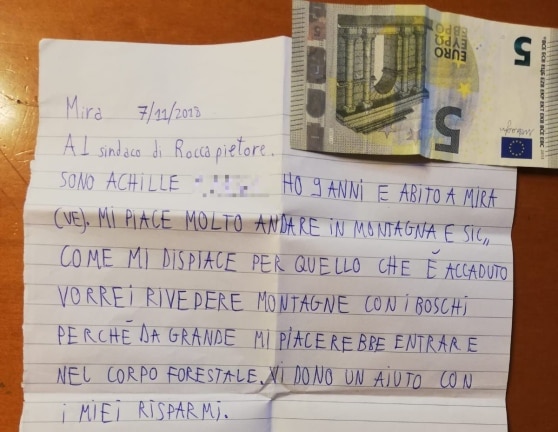 Mira 7/11/2018
Al sindaco di Roccapietore.
SONO ACHILLE HO 9 ANNI E ABITO A MIRA
(VE). MI PIACE MOLTO ANDARE IN MONTAGNA E SIC,,
COME MI DISPIACE PER QUELLO CHE È ACCADUTO
VORREI RIVEDERE MONTAGNE CON I BOSCHI
PERCHÈ DA GRANDE MI PIACEREBBE ENTRARE
NEL CORPO FORESTALE. VI DONO UN AIUTO CON
I MIEI RISPARMI.
5
EURO
ΕΥΡΩ
ЕВРО
5